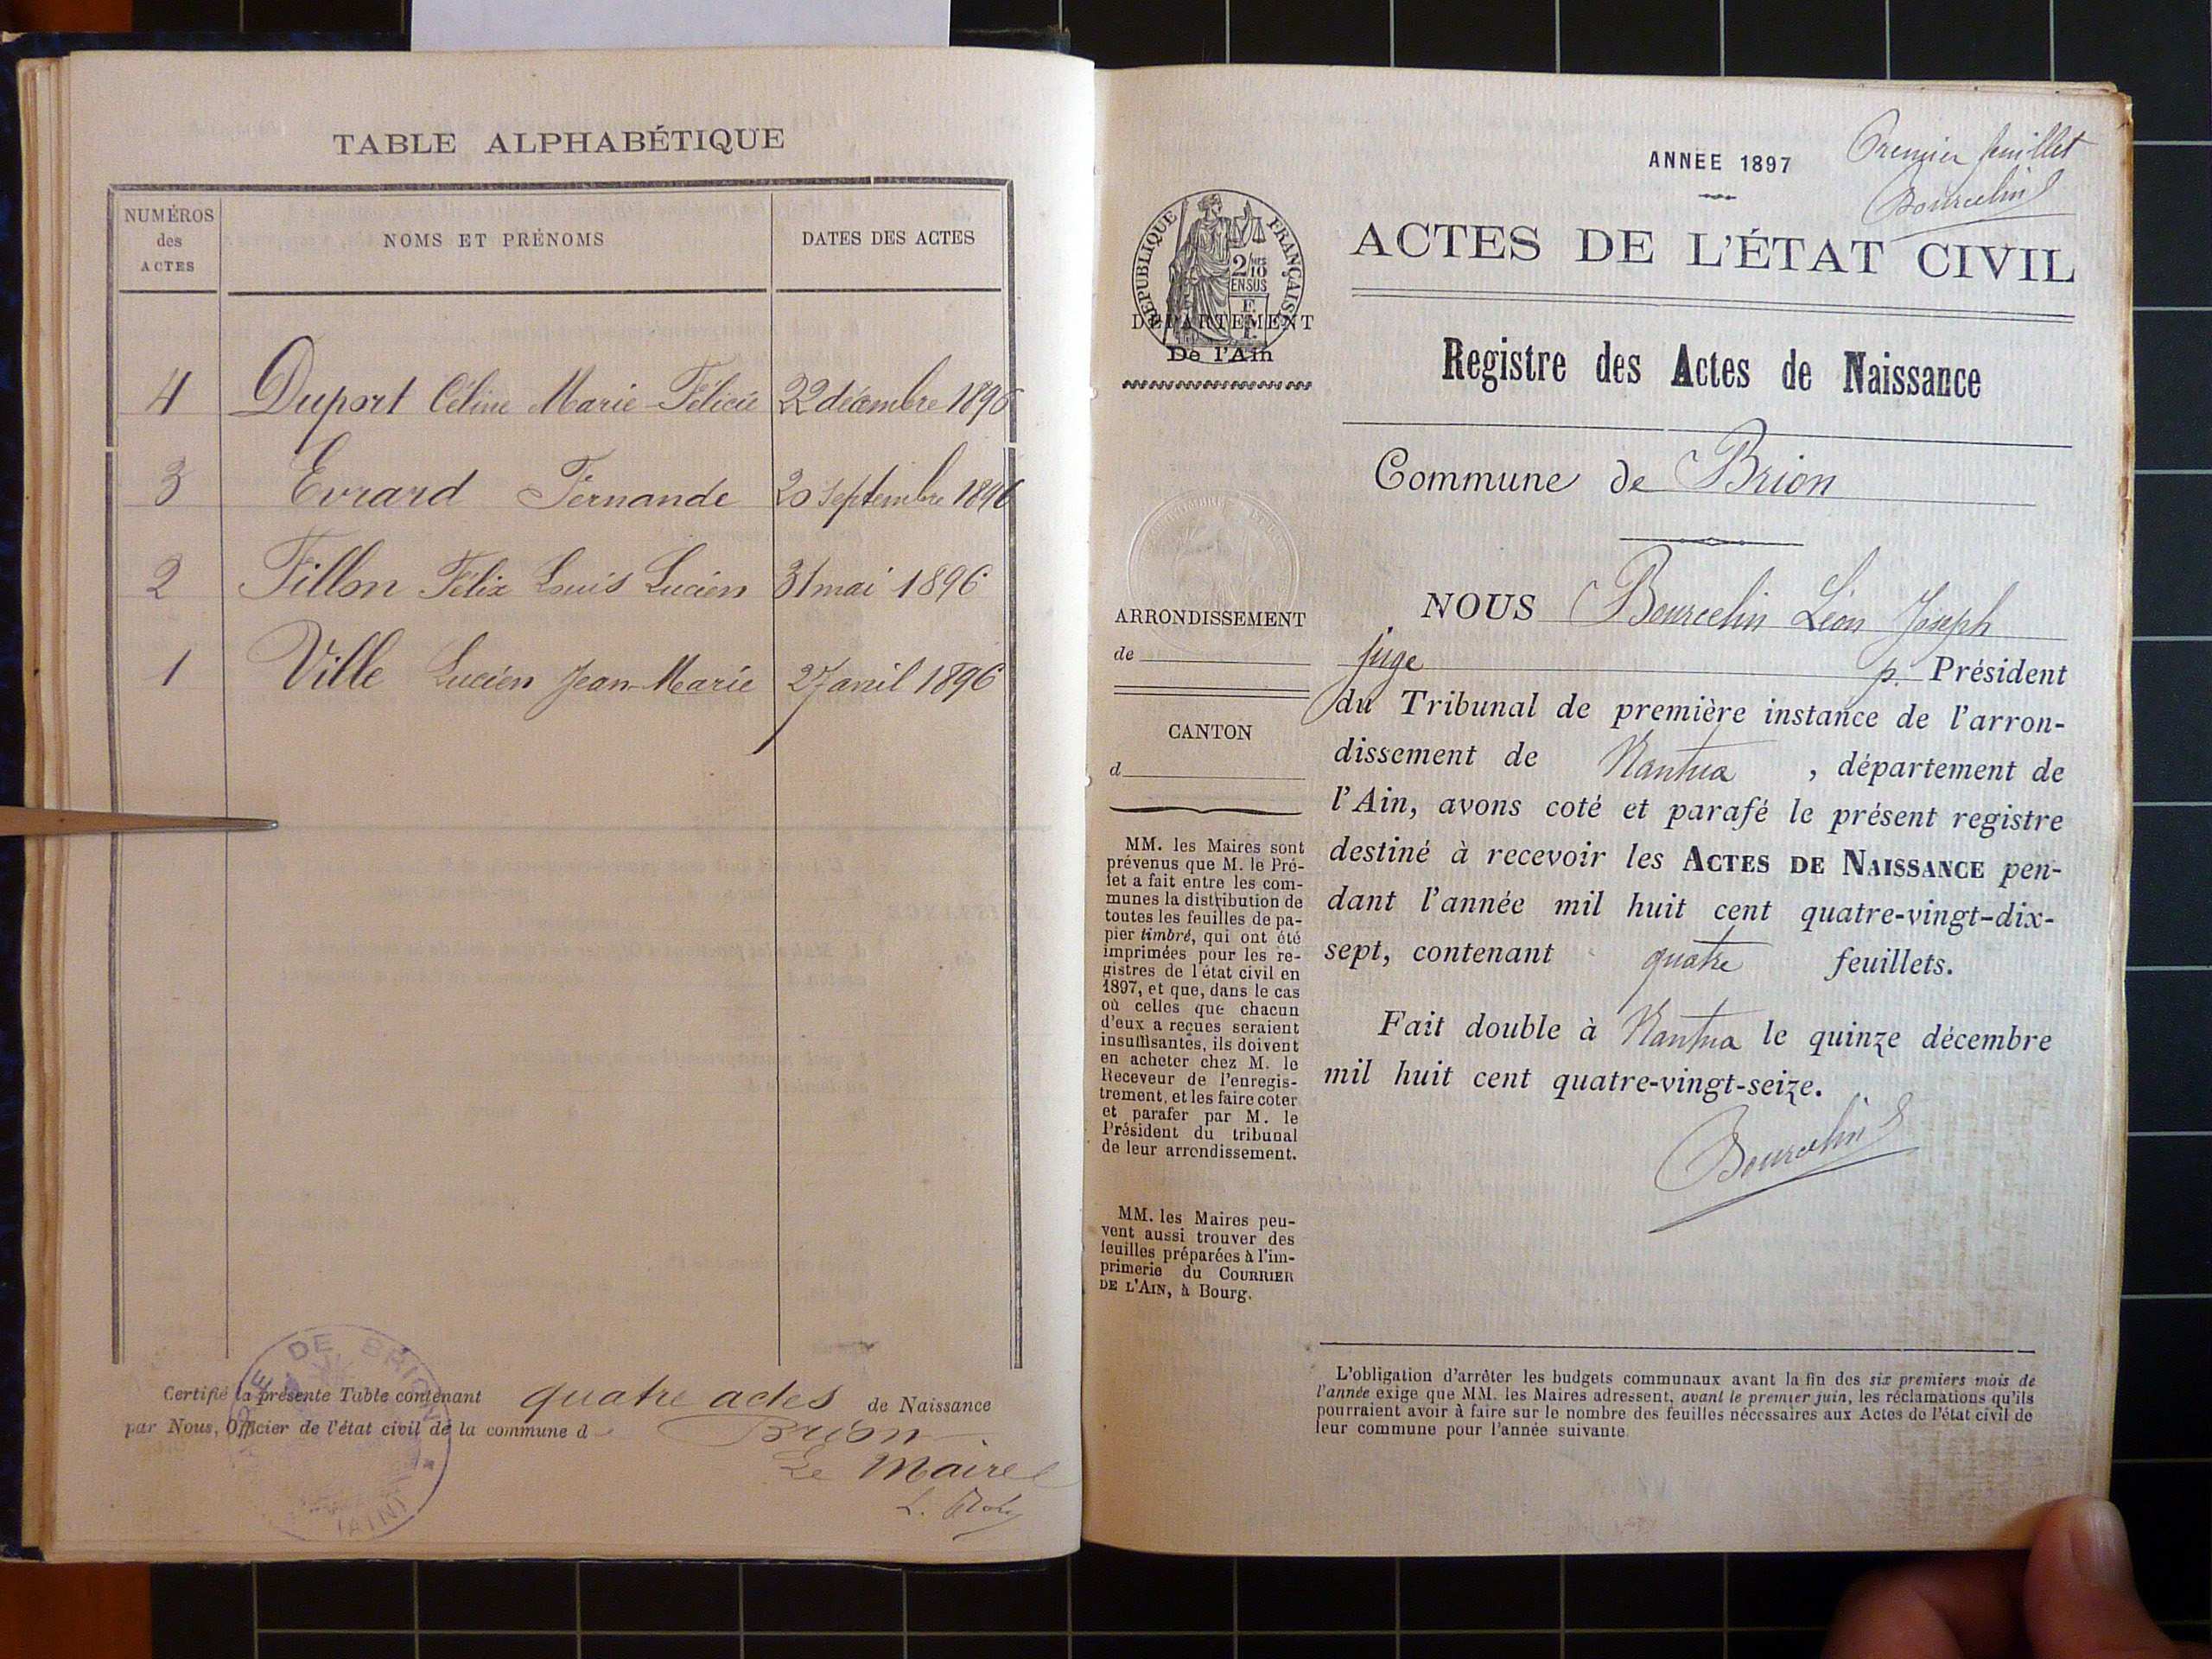 TABLE ALPHABÉTIQUE
NUMÉROS
des
ACTES
NOMS ET PRÉNOMS
DATES DES ACTES
4 Duport Céline Marie-Félicie 22 décembre 1896
3 Evrard Fernande 20 septembre 1896
2 Fillon Félix Louis Lucien 31 mai 1896
1 Ville Lucien Jean-Marie 27 avril 1896
Certifié la présente Table contenant quatre actes de Naissance
par Nous, Officier de l'état civil de la commune d Brion
Le Maire
DE BRION
(AIN)
Premier feuillet
Bourcelin
ANNEE 1897
ACTES DE L'ÉTAT CIVIL
RÉPUBLIQUE FRANÇAISE
2/10
EN SUS
DEPARTEMENT
De l'Ain
Registre des Actes de Naissance
Commune de Brion
ARRONDISSEMENT
de
CANTON
d
MM. les Maires sont
prévenus que M. le Pré-
fet a fait entre les com-
munes la distribution de
toutes les feuilles de pa-
pier timbré, qui ont été
imprimées pour les re-
gistres de l'état civil en
1897, et que, dans le cas
où celles que chacun
d'eux a reçues seraient
insuffisantes, ils doivent
en acheter chez M. le
Receveur de l'enregis-
trement, et les faire coter
et parafer par M. le
Président du tribunal
de leur arrondissement.
MM. les Maires peu-
vent aussi trouver des
feuilles préparées à l'im-
primerie du COURRIER
DE L'AIN, à Bourg.
NOUS Bourcelin Léon Joseph
juge p. Président
du Tribunal de première instance de l'arron-
dissement de Nantua, département de
l'Ain, avons coté et parafé le présent registre
destiné à recevoir les ACTES DE NAISSANCE pen-
dant l'année mil huit cent quatre-vingt-dix-
sept, contenant quatre feuillets.
Fait double à Nantua le quinze décembre
mil huit cent quatre-vingt-seize.
Bourcelin
L'obligation d'arrêter les budgets communaux avant la fin des six premiers mois de
l'année exige que MM. les Maires adressent, avant le premier juin, les réclamations qu'ils
pourraient avoir à faire sur le nombre des feuilles nécessaires aux Actes de l'état civil de
leur commune pour l'année suivante.